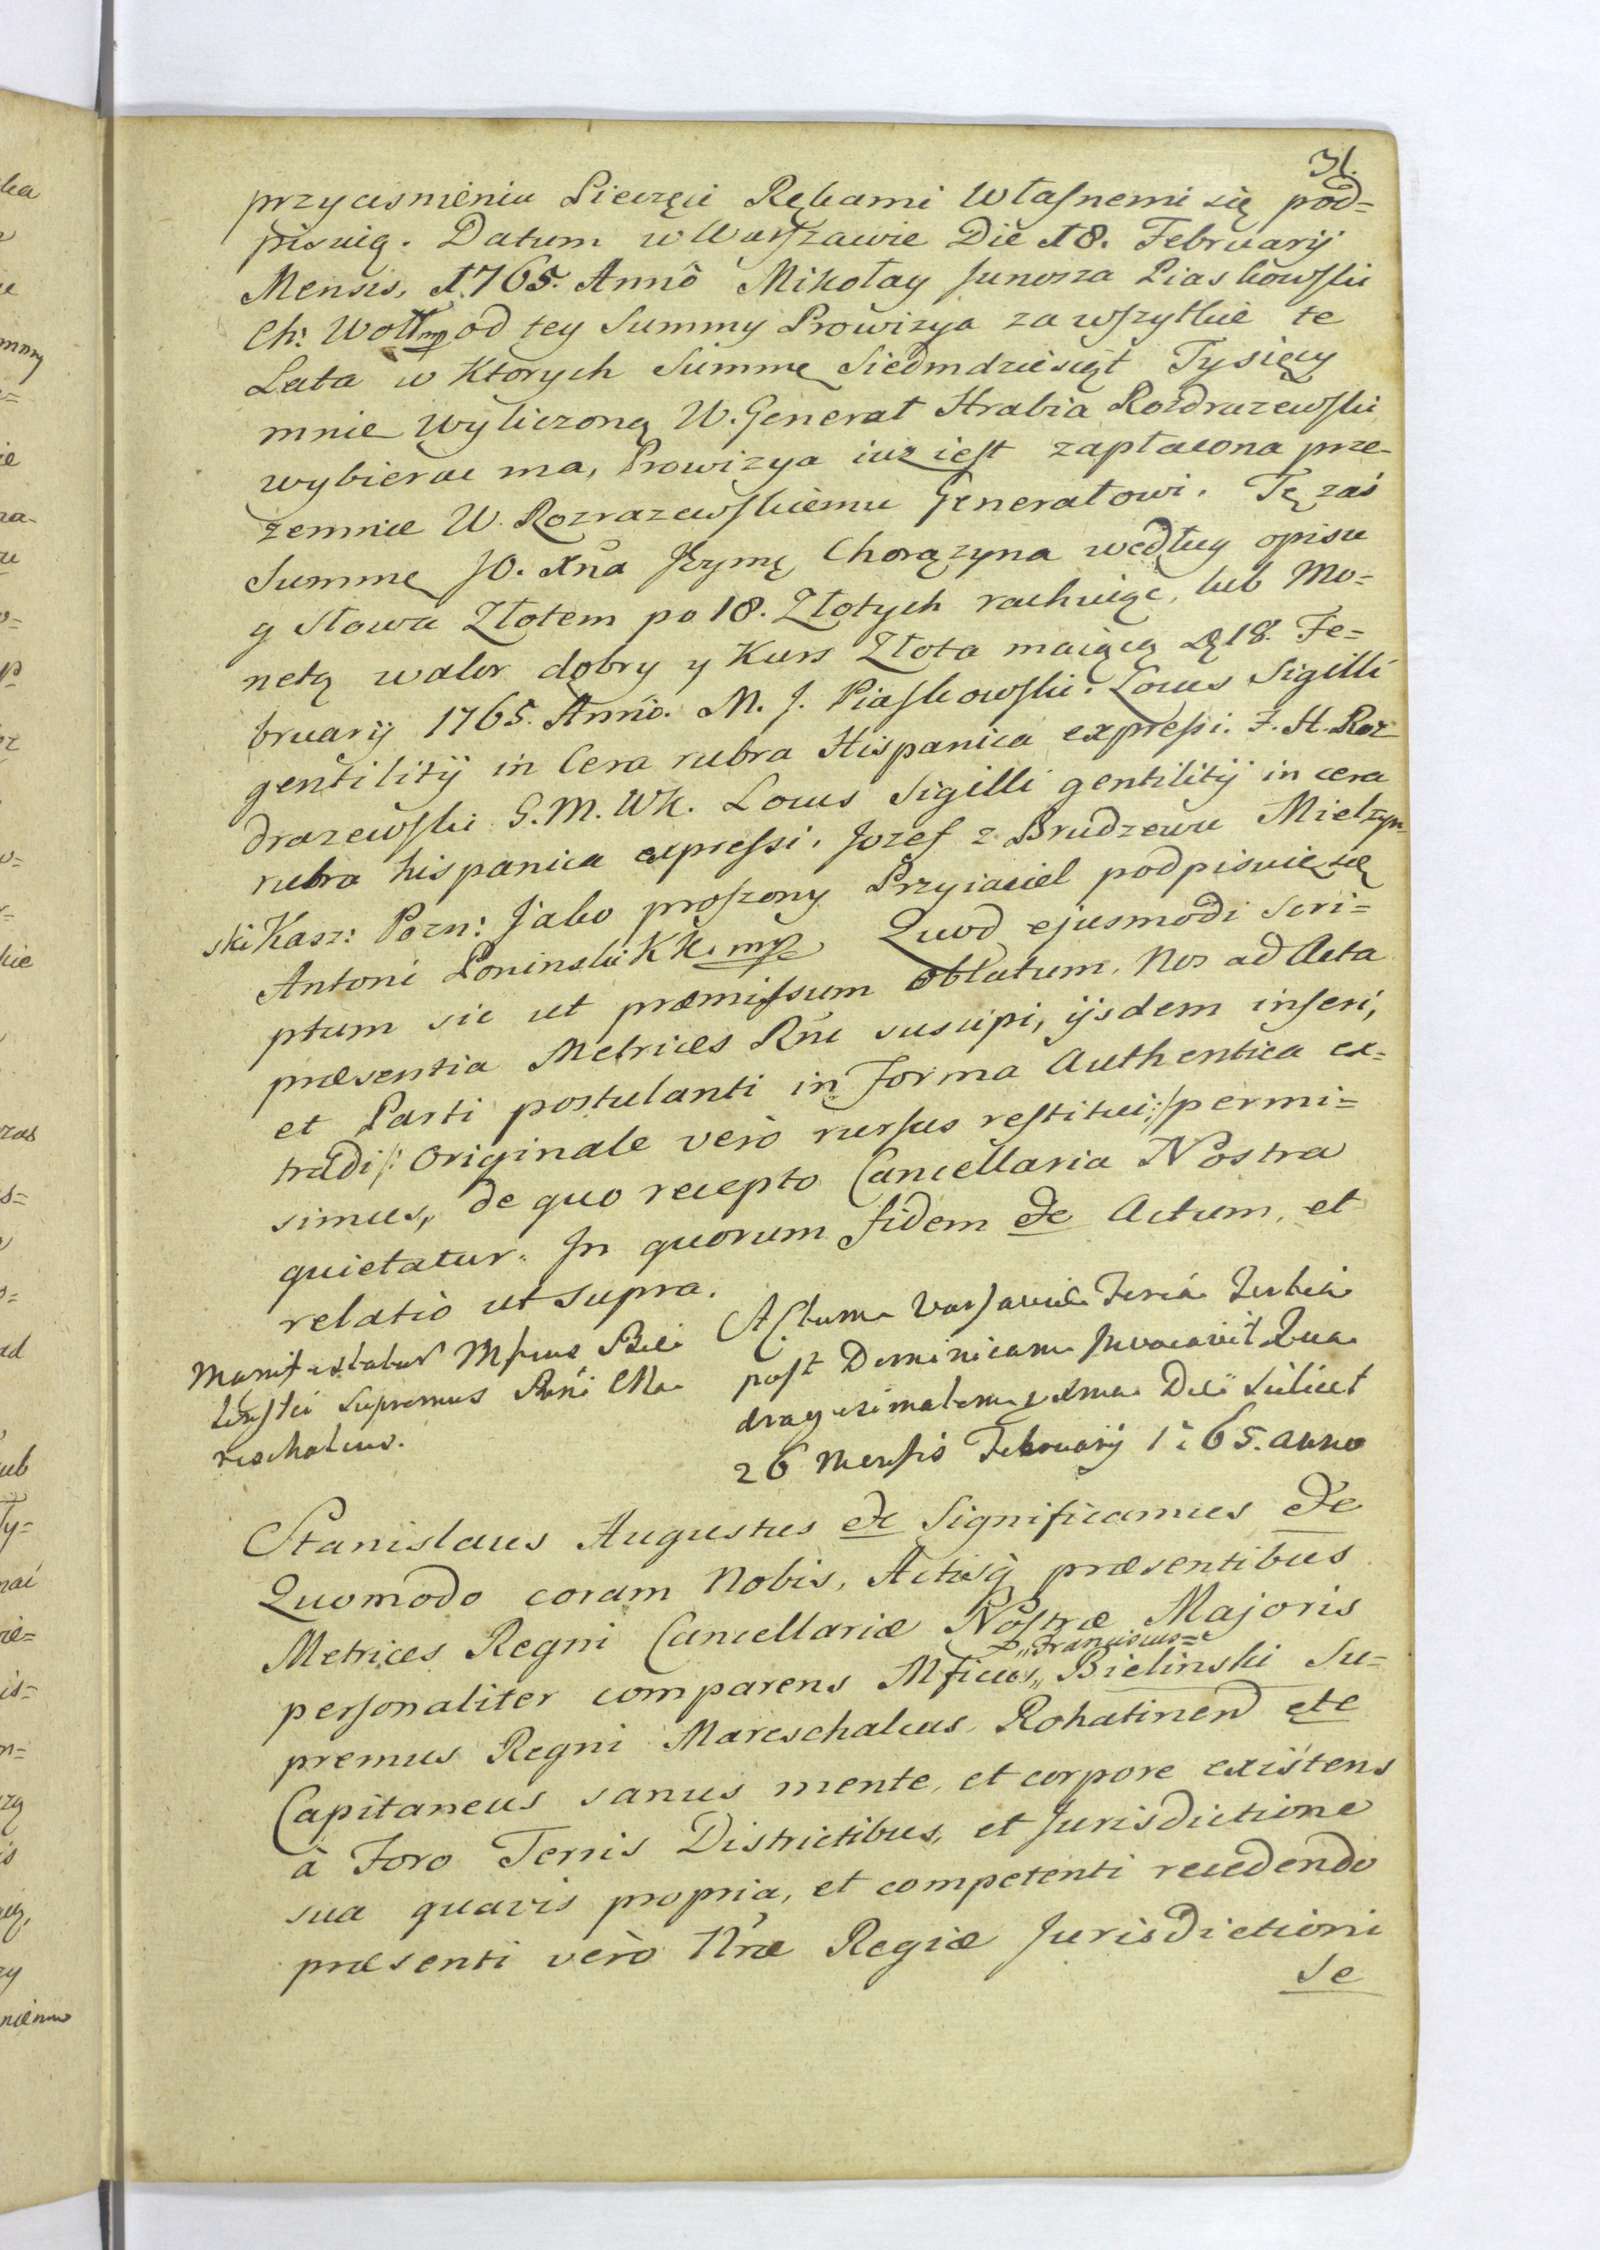 31.
przycisnieniu Pieczęci Rękami Własnemi się pod=
pisuią. Datum w Warszawie Die 18. February
Mensis, 1765. Anno Mikołay Junosza Piaskowski
Ch: Woł mp od tey Summy Prowizya za wszytkie te
Lata w Ktorych Summę Siedmdziesiąt Tysięcy
mnie wyliczoną W. Generał Hrabia Rozdrazewski
wybierac ma, Prowizya iuz iest zapłacona prze-
zemnie W. Rozrazewskiemu Generałowi. Tę zaś
Summę JO. Xna Jeymę Chorązyna według opisu
g słowu Złotem po 18. Złotych rachuiąc, lub Mo=
netą walor dobry y Kurs Złota maiącą D 18. Fe=
bruarij 1765. Anno. M. J. Piaskowski. Locus Sigilli
gentilitij in Cera rubra Hispanica expressi. F. H. Roz
drazewski G. M. WK. Locus Sigilli gentilitij in cera
rubra hispanica expressi. Jozef z Brudzewu Mielzyn
ski Kasz: Pozn: Jako proszony Przyiaciel podpisuię się
Antoni Poninski KK. mp Quod ejusmodi Scri=
ptum sic ut præmissum oblatum, Nos ad Acta
præsentia Metrices Rni suscipi, ijsdem inseri,
et Parti postulanti in Forma Authentica ex=
tradi /: Originale verò rursus restitui :/ permi=
simus, de quo recepto Cancellaria Nostra
quietatur. In quorum fidem etc Actum, et
relatio ut supra.
Manifestatur Mficus Bie
linski Supremus Rni Ma
reschalcus.
Actum Varsaviæ Feria Tertia
post Dominicam Invocavit Qua
dragesimalem xma Die scilicet
26 Mensis February 1765. anno
Stanislaus Augustus etc Significamus etc
Quomodo coram Nobis, Actisq præsentibus
Metrices Regni Cancellariæ Nostræ Majoris
„Franciscus=
personaliter comparens Mficus „ Bielinski Su=
premus Regni Mareschalcus, Rohatinen etc
Capitaneus sanus mente, et corpore existens
à Foro Terris Districtibus, et Jurisdictione
sua quavis propria, et competenti recedendo
præsenti verò Nræ Regiæ Jurisdictioni
se